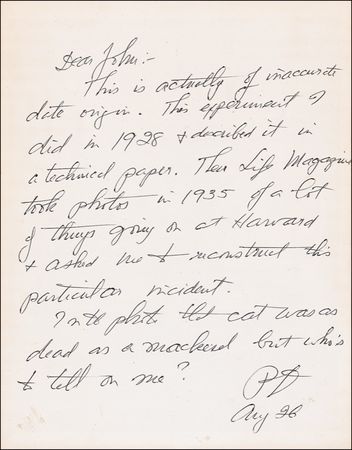 Dear John:-
This is actually of inaccurate
date origin. This experiment I
did in 1928 & decribed it in
a technical paper. Then Life Magazine
took photos in 1935 of a lot
of things going on at Harvard
& asked me to reconstruct this
particular incident.
In the photo the cat was as
dead as a mackerel but who's
to tell on me?
PD
Aug 26